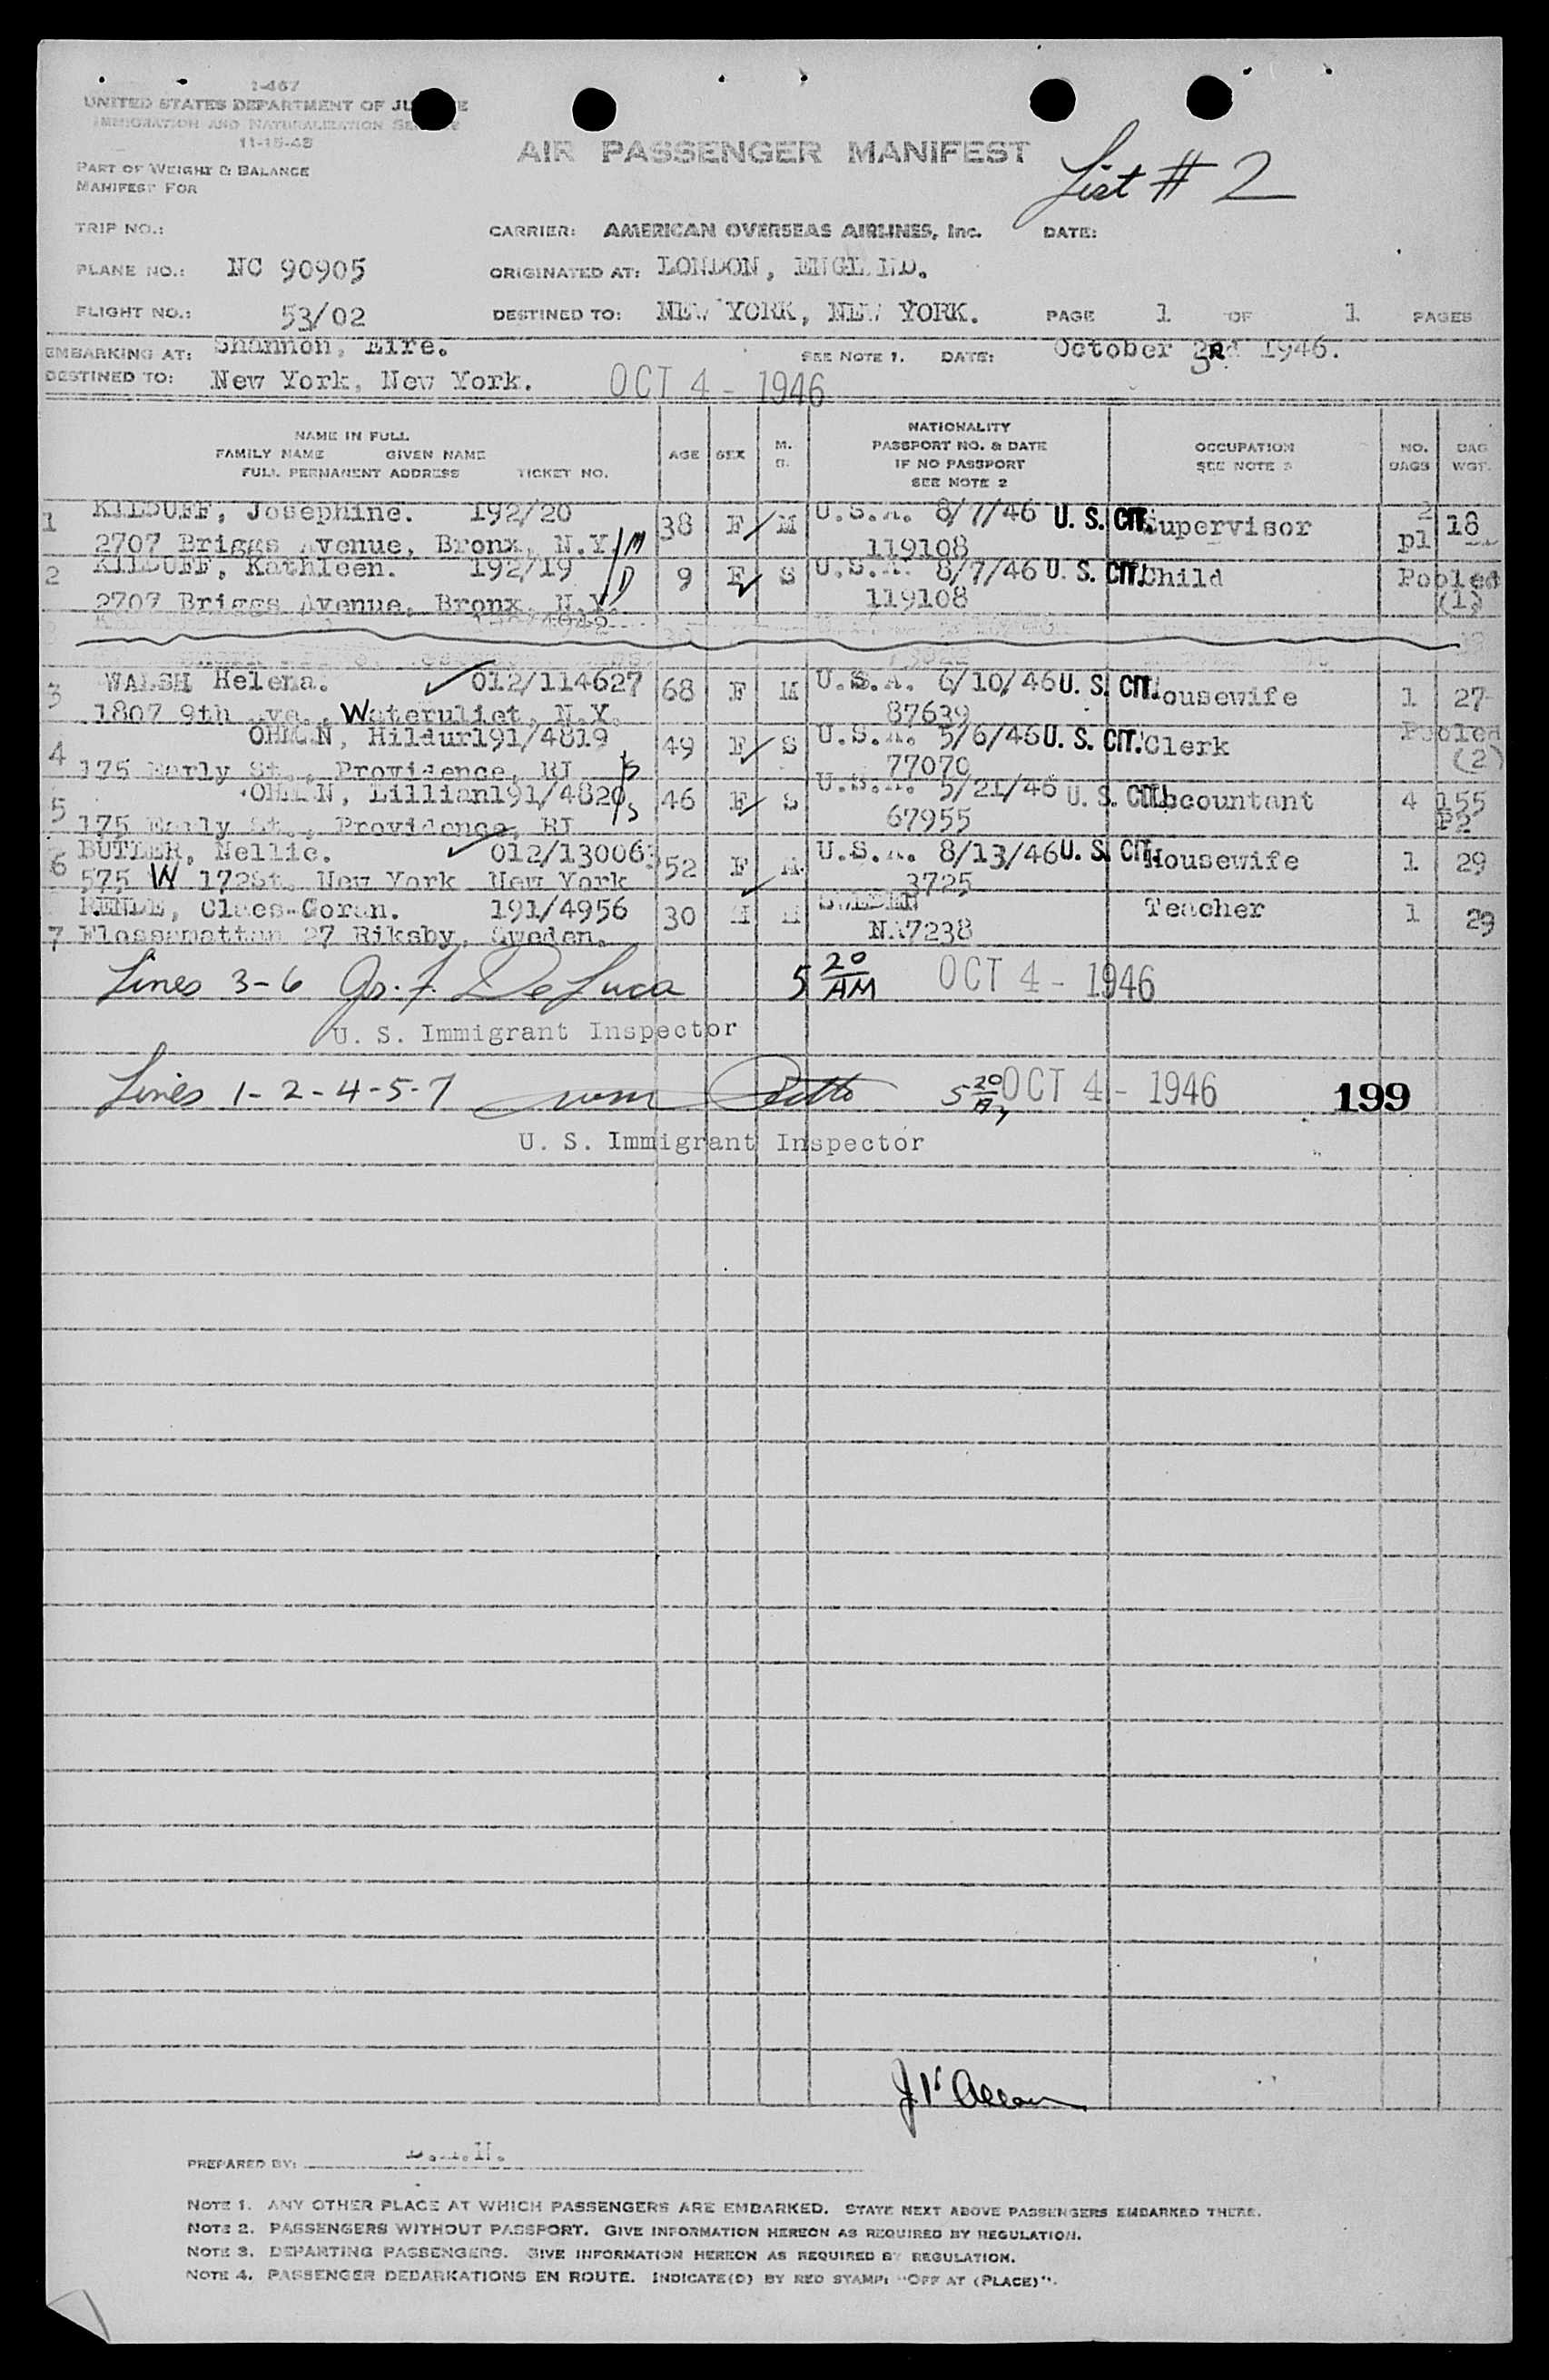 I-467
UNITED STATES DEPARTMENT OF JU E
IMMIGRATION AND NATURALIZATION SE
11-15-45
PART OF WEIGHT & BALANCE
MANIFEST FOR
AIR PASSENGER MANIFEST
List # 2
TRIP NO.: CARRIER: AMERICAN OVERSEAS AIRLINES, Inc. DATE:
PLANE NO.: NC 90905 ORIGINATED AT: LONDON, ENGLAND.
FLIGHT NO.: 53/02 DESTINED TO: NEW YORK, NEW YORK. PAGE 1 OF 1 PAGES
EMBARKING AT: Shannon, Eire. SEE NOTE 1. DATE: October 3Rd 1946.
DESTINED TO: New York, New York. OCT 4 - 1946
NAME IN FULL
FAMILY NAME GIVEN NAME
FULL PERMANENT ADDRESS TICKET NO.
AGE SEX M. S.
NATIONALITY
PASSPORT NO. & DATE
IF NO PASSPORT
SEE NOTE 2
OCCUPATION
SEE NOTE 3
NO. BAGS
BAG WGT.
1 KILDUFF, Josephine. 192/20 38 F M U.S.A. 8/7/46 U. S. CIT. Supervisor 2 18
2707 Briggs Avenue, Bronx, N.Y. M 119108 pl
2 KILDUFF, Kathleen. 192/19 9 F S U.S.A. 8/7/46 U. S. CIT. Child Pooled
2707 Briggs Avenue, Bronx, N.Y. D 119108 (1)
3 WALSH Helena. 012/114627 68 F M U.S.A. 6/10/46 U. S. CIT. Housewife 1 27
1807 9th Ave., Wateruliet, N.Y. 87639
4 OHMAN, Hildur 191/4819 49 F S U.S.A. 5/6/46 U. S. CIT. Clerk Pooled
175 Early St., Providence, RI S 77070 (2)
5 OHMAN, Lillian 191/4820 46 F S U.S.A. 5/21/46 U. S. CIT. Accountant 4 155
175 Early St., Providence, RI S 67955 P2
6 BUTLER, Nellie. 012/130063 52 F M U.S.A. 8/13/46 U. S. CIT. Housewife 1 29
575 W 172St. New York New York 3725
RENDE, Claes-Goran. 191/4956 30 M M SWEDEN Teacher 1 29
7 Flossamattan 27 Riksby, Sweden. NA7238
Lines 3-6 Jos. F. DeLuca 5 20 AM OCT 4 - 1946
U. S. Immigrant Inspector
Lines 1-2-4-5-7 5 20 OCT 4 - 1946 199
U. S. Immigrant Inspector
PREPARED BY:
NOTE 1. ANY OTHER PLACE AT WHICH PASSENGERS ARE EMBARKED. STATE NEXT ABOVE PASSENGERS EMBARKED THERE.
NOTE 2. PASSENGERS WITHOUT PASSPORT. GIVE INFORMATION HEREON AS REQUIRED BY REGULATION.
NOTE 3. DEPARTING PASSENGERS. GIVE INFORMATION HEREON AS REQUIRED BY REGULATION.
NOTE 4. PASSENGER DEBARKATIONS EN ROUTE. INDICATE(D) BY RED STAMP: "OFF AT (PLACE)".